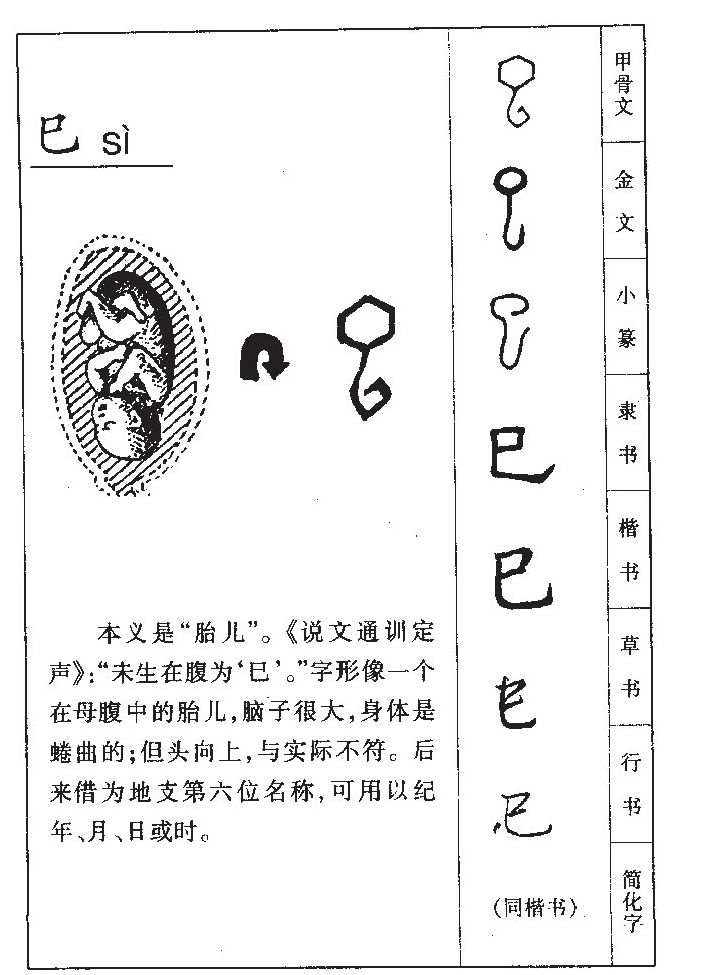 巳 sì
本义是“胎儿”。《说文通训定
声》:“未生在腹为‘巳’。”字形像一个
在母腹中的胎儿,脑子很大,身体是
蜷曲的;但头向上,与实际不符。后
来借为地支第六位名称,可用以纪
年、月、日或时。
甲骨文
金文
小篆
隶书
巳
楷书
巳
草书
巳
行书
巳
简化字
(同楷书)